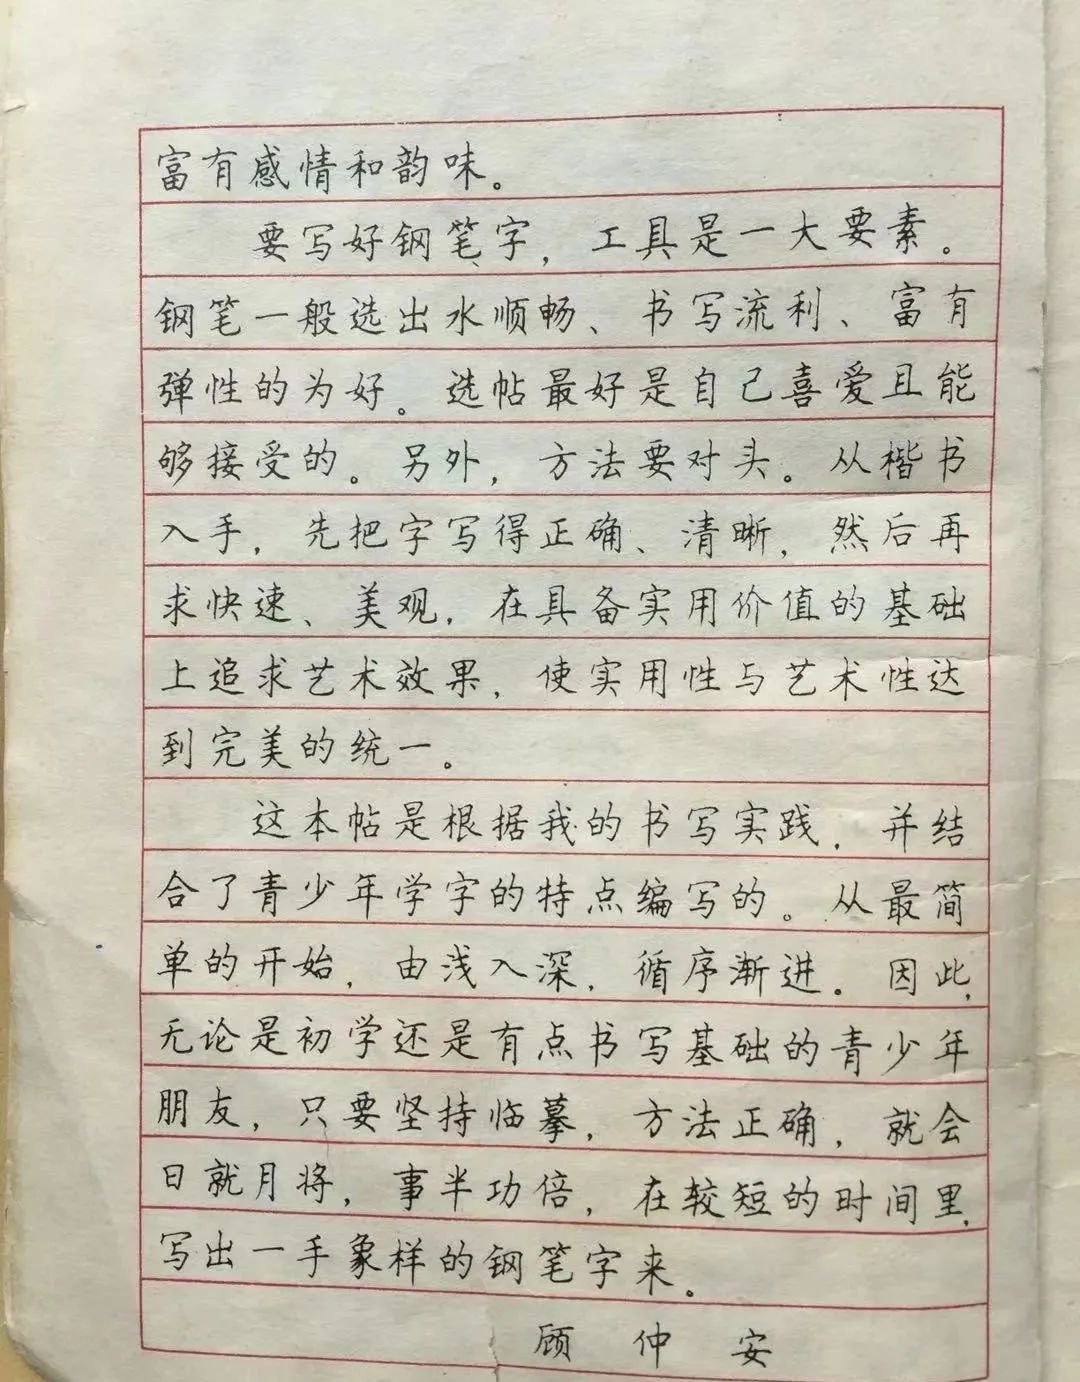 富有感情和韵味。
要写好钢笔字，工具是一大要素。
钢笔一般选出水顺畅、书写流利、富有
弹性的为好。选帖最好是自己喜爱且能
够接受的。另外，方法要对头。从楷书
入手，先把字写得正确、清晰，然后再
求快速、美观，在具备实用价值的基础
上追求艺术效果，使实用性与艺术性达
到完美的统一。
这本帖是根据我的书写实践，并结
合了青少年学字的特点编写的。从最简
单的开始，由浅入深，循序渐进。因此，
无论是初学还是有点书写基础的青少年
朋友，只要坚持临摹，方法正确，就会
日就月将，事半功倍，在较短的时间里，
写出一手象样的钢笔字来。
顾仲安